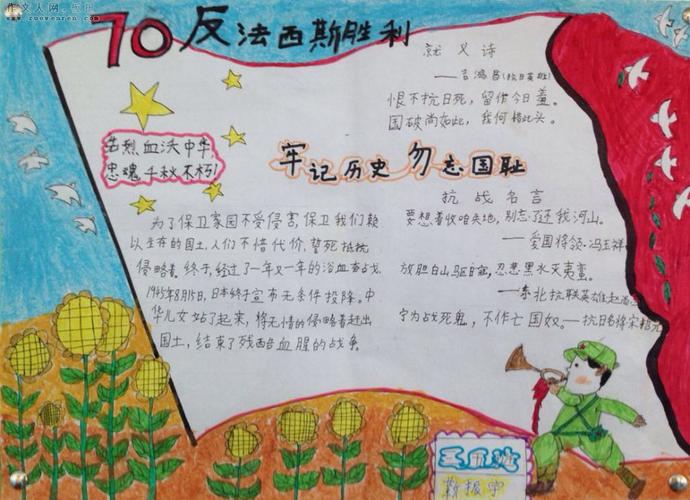 作文人网
www.zuowenren.com
70反法西斯胜利
就义诗
——吉鸿昌(抗日英雄)
恨不抗日死，留作今日羞。
国破尚如此，我何惜此头。
壮烈血沃中华，
忠魂千秋不朽！
牢记历史 勿忘国耻
抗战名言
为了保卫家园不受侵害，保卫我们赖
以生存的国土，人们不惜代价，誓死抵抗
侵略者。终于，经过了一年又一年的浴血奋战，
1945年8月15日，日本终于宣布无条件投降。中
华儿女站了起来，将无情的侵略者赶出
国土，结束了残酷血腥的战争。
要想着收咱失地，别忘了还我河山。
——爱国将领·冯玉祥
放胆白山驱日寇，忍悲黑水灭夷蛮。
——东北抗联英雄赵
宁为战死鬼，不作亡国奴。——抗日名将宋
三五班